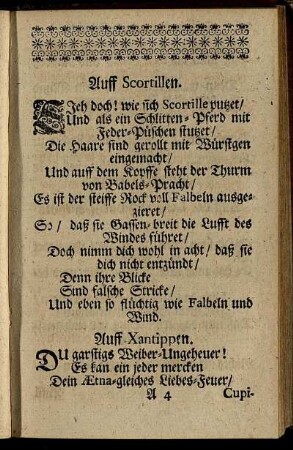 Auff Scortillen.
SJeh doch! wie sich Scortille putzet/
Und als ein Schlitten-Pferd mit
Feder-Püschen stutzet/
Die Haare sind gerollt mit Würstgen
eingemacht/
Und auff dem Kopffe steht der Thurm
von Babels-Pracht/
Es ist der steiffe Rock voll Falbeln ausge-
zieret/
So/ daß sie Gassen-breit die Lufft des
Windes führet/
Doch nimm dich wohl in acht/ daß sie
dich nicht entzündt/
Denn ihre Blicke
Sind falsche Stricke/
Und eben so flüchtig wie Falbeln und
Wind.
Auff Xantippen.
DU garstigs Weiber-Ungeheuer!
Es kan ein jeder mercken
Dein Ætna-gleiches Liebes-Feuer/
A 4 Cupi-